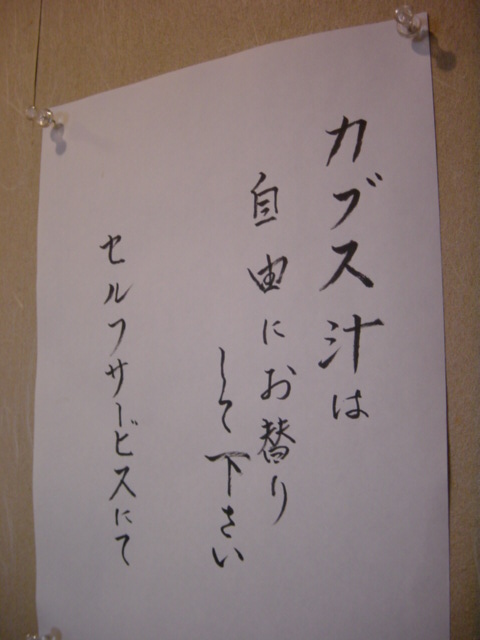 カブス汁は
自由にお替り
して下さい
セルフサービスにて